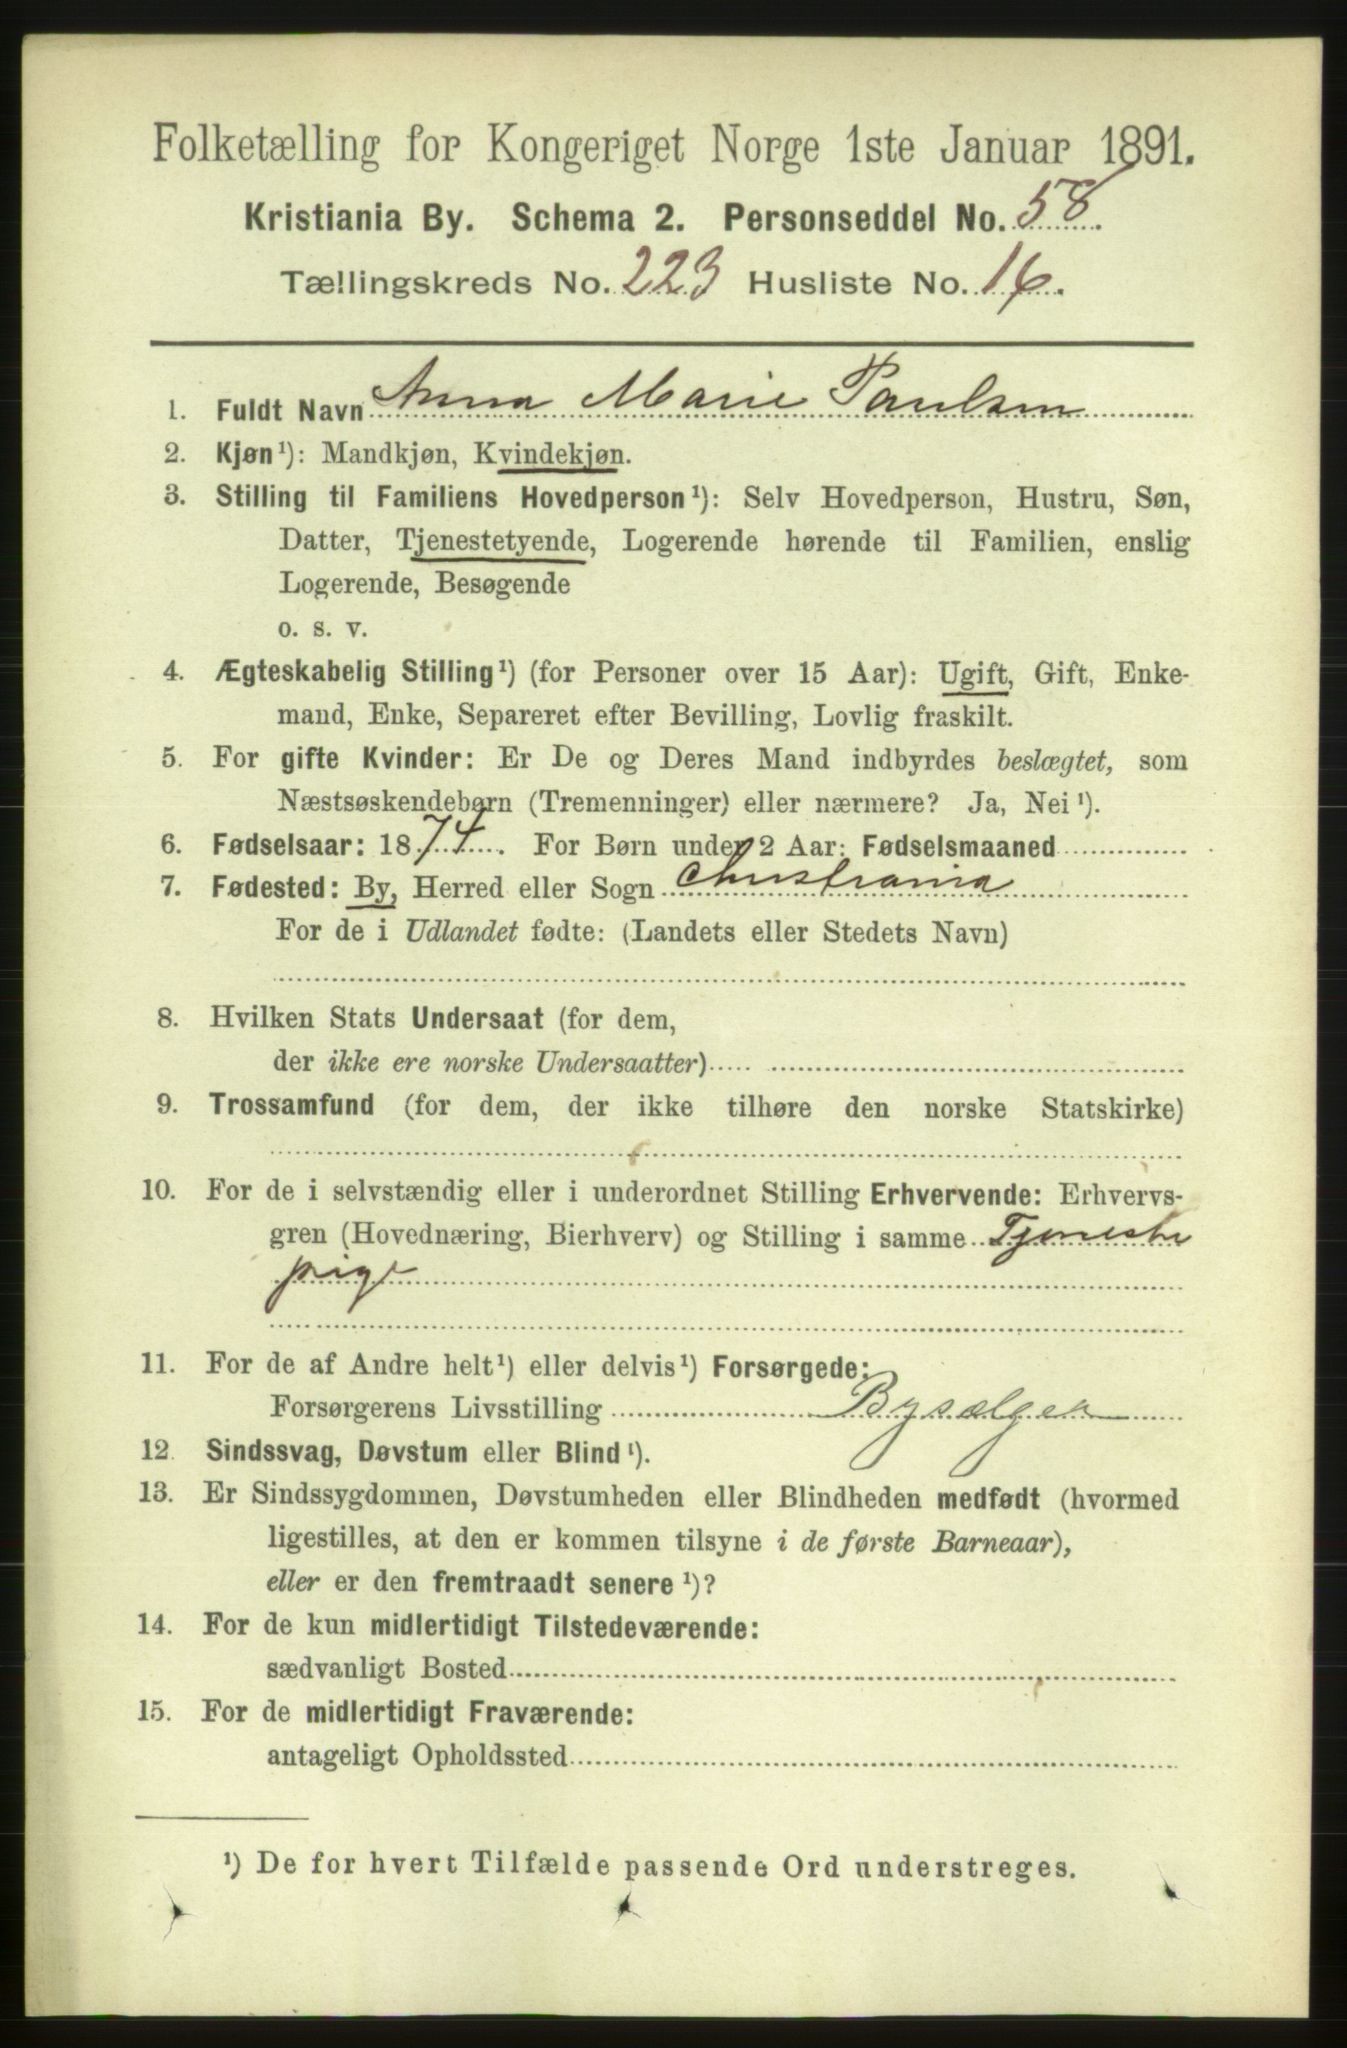 Folketælling for Kongeriget Norge 1ste Januar 1891.
Kristiania By. Schema 2. Personseddel No. 58.
Tællingskreds No. 223 Husliste No. 16.
1. Fuldt Navn Anna Marie Paulsen
2. Kjøn¹): Mandkjøn, Kvindekjøn.
3. Stilling til Familiens Hovedperson¹): Selv Hovedperson, Hustru, Søn,
Datter, Tjenestetyende, Logerende hørende til Familien, enslig
Logerende, Besøgende
o. s. v.
4. Ægteskabelig Stilling¹) (for Personer over 15 Aar): Ugift, Gift, Enke-
mand, Enke, Separeret efter Bevilling, Lovlig fraskilt.
5. For gifte Kvinder: Er De og Deres Mand indbyrdes beslægtet, som
Næstsøskendebørn (Tremenninger) eller nærmere? Ja, Nei¹).
6. Fødselsaar: 1874. For Børn under 2 Aar: Fødselsmaaned
7. Fødested: By, Herred eller Sogn Christiania
For de i Udlandet fødte: (Landets eller Stedets Navn)
8. Hvilken Stats Undersaat (for dem,
der ikke ere norske Undersaatter)
9. Trossamfund (for dem, der ikke tilhøre den norske Statskirke)
10. For de i selvstændig eller i underordnet Stilling Erhvervende: Erhvervs-
gren (Hovednæring, Bierhverv) og Stilling i samme Tjeneste
pige
11. For de af Andre helt¹) eller delvis¹) Forsørgede:
Forsørgerens Livsstilling Bysælger
12. Sindssvag, Døvstum eller Blind¹).
13. Er Sindssygdommen, Døvstumheden eller Blindheden medfødt (hvormed
ligestilles, at den er kommen tilsyne i de første Barneaar),
eller er den fremtraadt senere¹)?
14. For de kun midlertidigt Tilstedeværende:
sædvanligt Bosted
15. For de midlertidigt Fraværende:
antageligt Opholdssted
¹) De for hvert Tilfælde passende Ord understreges.